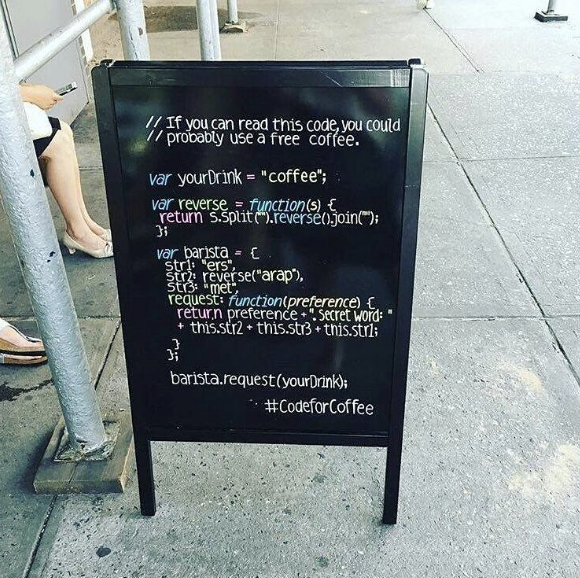 // If you can read this code, you could
// probably use a free coffee.
var yourDrink = "coffee";
var reverse = function(s) {
return s.split("").reverse().join("");
};
var barista = {
str1: "ers",
str2: reverse("arap),
str3: "met",
request: function(preference) {
return preference + ". Secret word: "
+ this.str2 + this.str3 + this.str1;
}
};
barista.request(yourDrink);
#CodeforCoffee